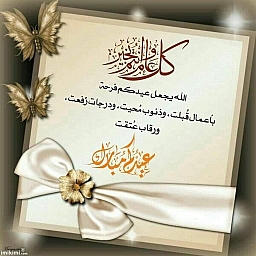 كل عام وأنتم بخير
الله يجعل عيدكم فرحة
بأعمال قُبلت، وذنوب مُحيت، ودرجات رُفعت،
ورقاب عُتقت
عيدكم مبارك
imikimi.com